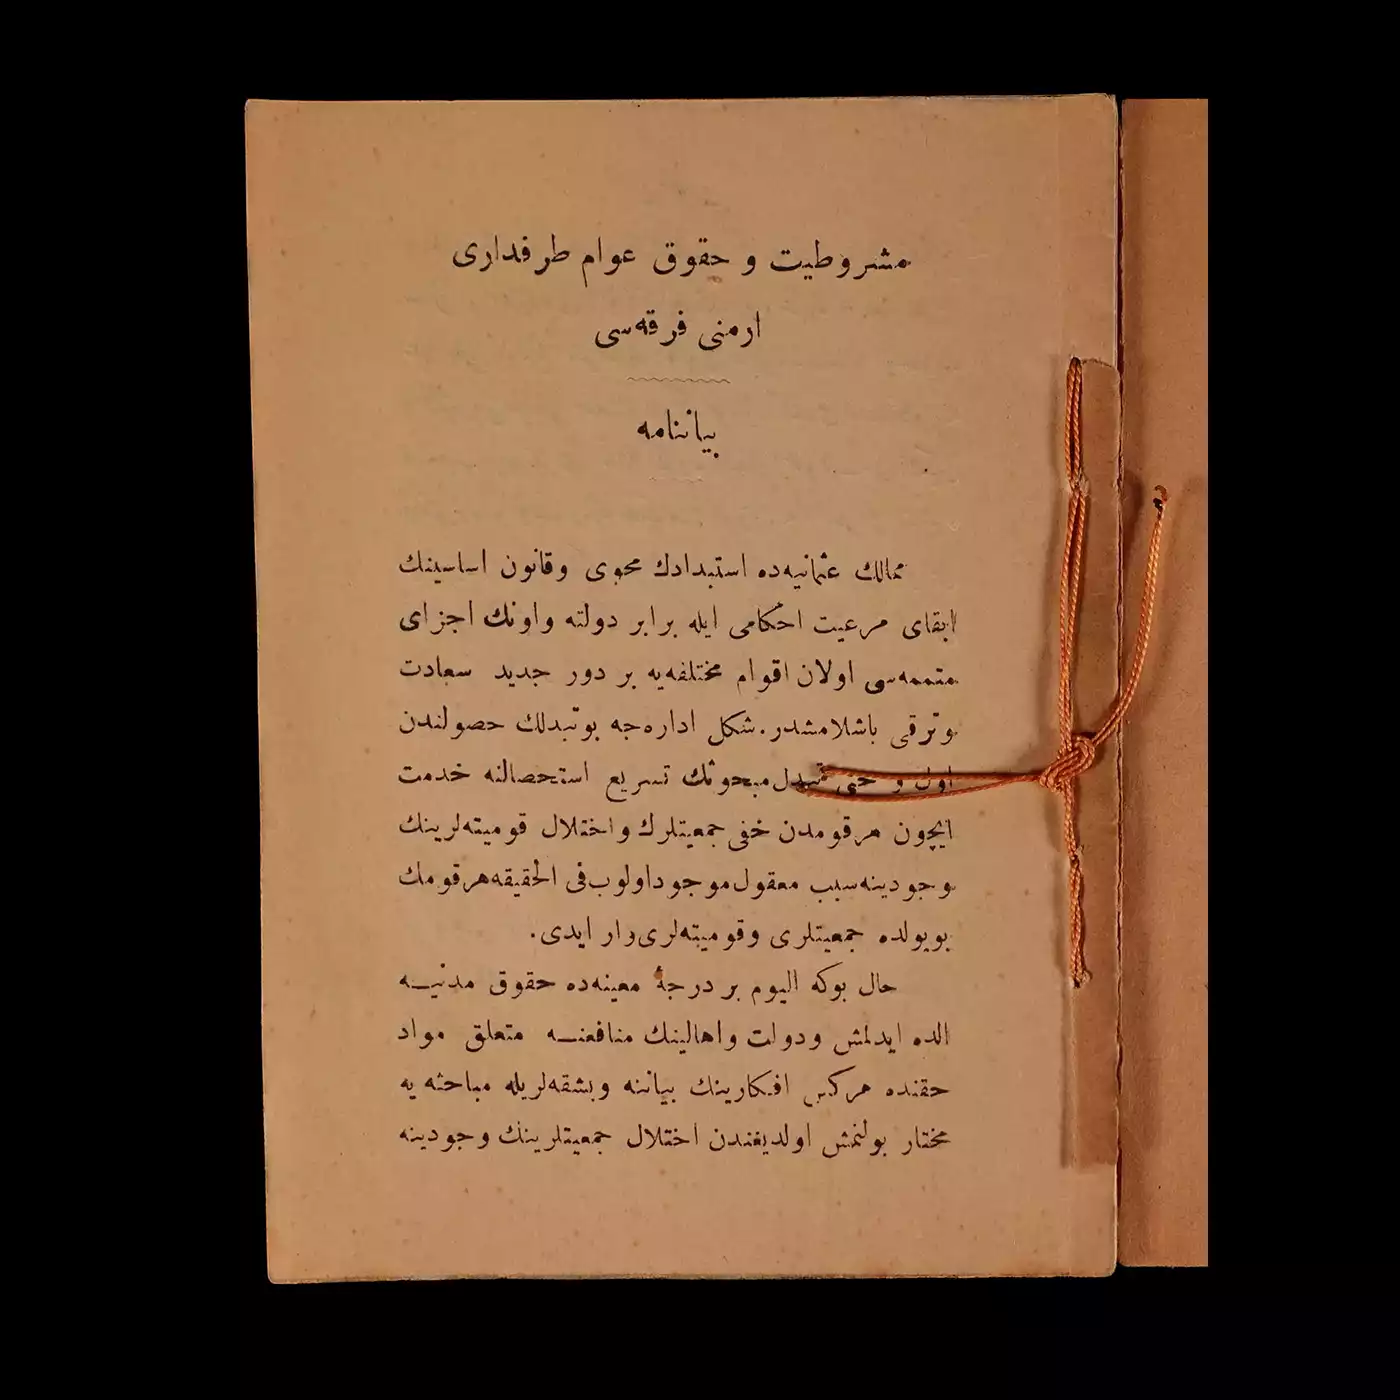 مشروطیت و حقوق عوام طرفداری
ارمنی فرقه‌سی
بیاننامه
ممالك عثمانیه‌ده استبدادك محوی وقانون اساسینك
ابقای مرعیت احکامی ایله برابر دولته واونك اجزای
متممه‌سی اولان اقوام مختلفه‌یه بر دور جدید سعادت
وترقی باشلامشدر. شکل اداره‌جه بوتبدلك حصولندن
اول و حتی تبدل مبحوثك تسریع استحصالنه خدمت
ایچون هرقومدن خفی جمعیتلرك واختلال قومیته‌لرینك
وجودینه سبب معقول موجود اولوب فی الحقیقه هرقومك
بویولده جمعیتلری وقومیته‌لری وار ایدی.
حال بوکه الیوم بر درجهٔ معینه‌ده حقوق مدنیـه
الده ایدلمش ودولت واهالینك منافعنـه متعلق مواد
حقنده هرکس افکارینك بیاننه وبشقه‌لریله مباحثه یه
مختار بولنمش اولدیغندن اختلال جمعیتلرینك وجودینه